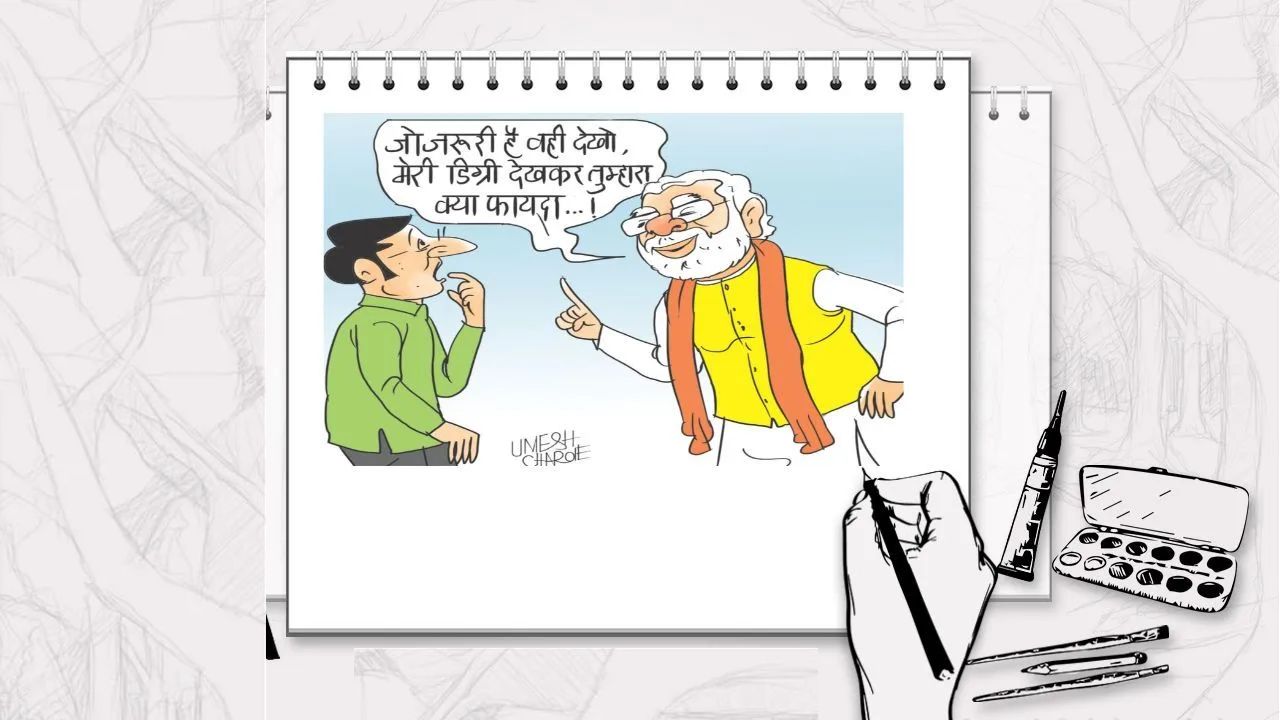 जो जरूरी है वही देखो,
मेरी डिग्री देखकर तुम्हारा
क्या फायदा...!
UMESH
CHARDE